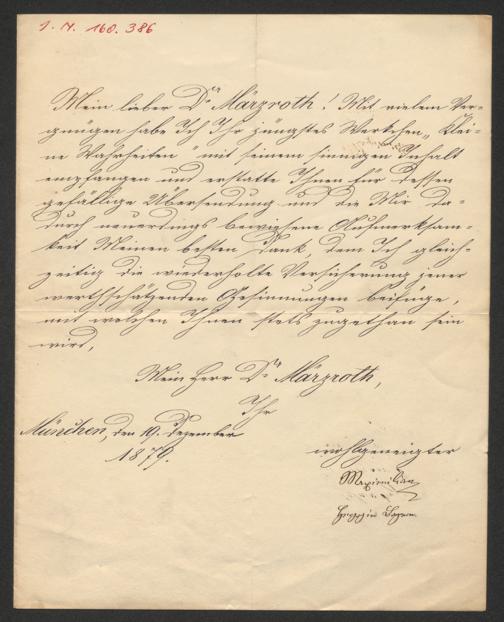 I. N. 160.386
Mein lieber Dr Märzroth! Mit vielem Ver-
gnügen habe Ich Ihr jüngstes Werkchen „Klei-
ne Wahrheiten" mit seinem sinnigen Inhalt
empfangen und erstatte Ihnen für dessen
gefällige Übersendung und die Mir da-
durch neuerdings bewiesene Aufmerksam-
keit Meinen besten Dank, dem Ich gleich-
zeitig die wiederholte Versicherung jener
werthschätzenden Gesinnungen beifüge,
mit welchen Ihnen stets zugethan sein
wird,
Mein Herr Dr Märzroth,
Ihr
München, den 19. Dezember
1879.
wohlgeneigter
Maximilian
Herzog in Bayern